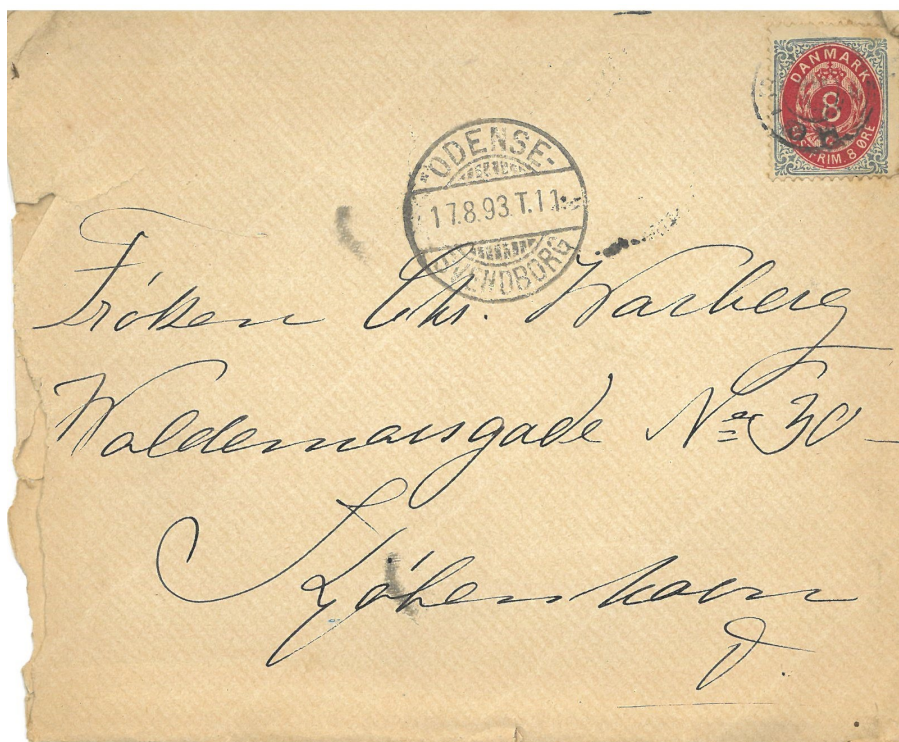 DANMARK
8
FRIM. 8 ØRE
ODENSE-
17.8.93.T.11
SVENDBORG
Fröken Chr. Warberg
Waldemarsgade No 30
Kjøbenhavn
V.